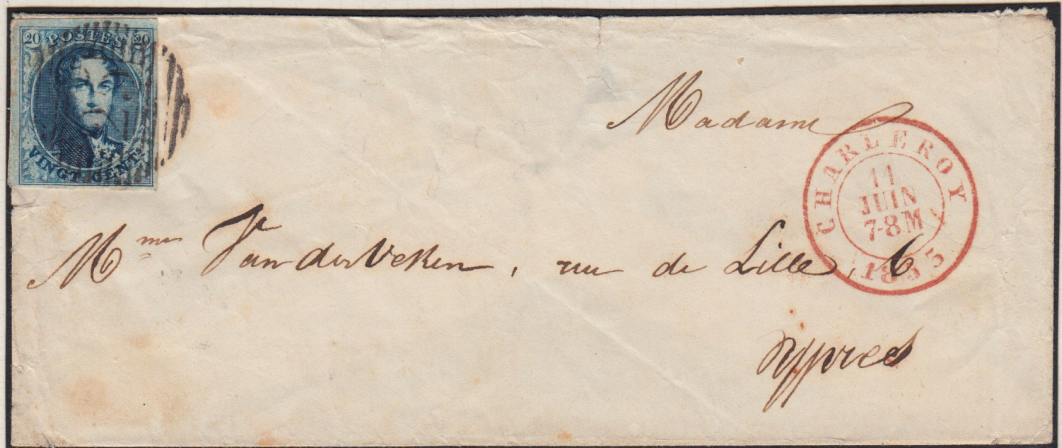 20 POSTES 20
VINGT CENTS
Madame
CHARLEROY
11
JUIN
7-8M
1855
Mme Vanderveken, rue de Lille, 6
Ypres